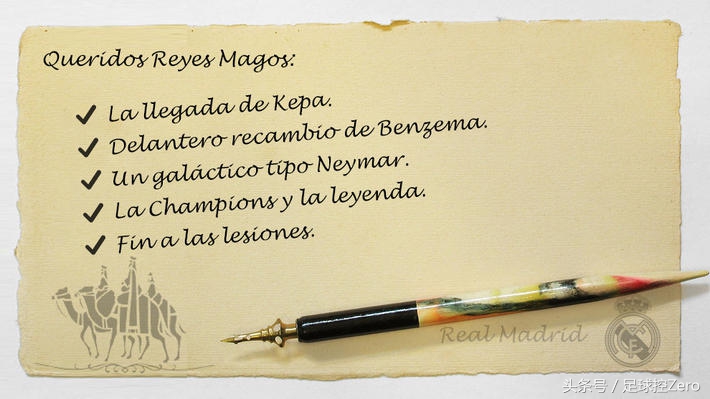 Queridos Reyes Magos:
La llegada de Kepa.
Delantero recambio de Benzema.
Un galáctico tipo Neymar.
La Champions y la leyenda.
Fin a las lesiones.
Real Madrid
头条号 / 足球控Zero